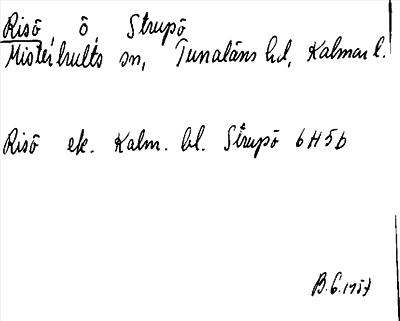 Risö, ö, Strupö
Misterhults sn, Tunaläns hd, Kalmar l.
Risö ek. Kalm. bl. Strupö 6H5b
B.G. 1957